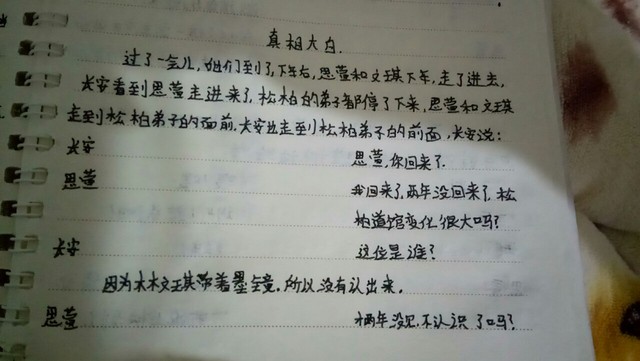 真相大白.
过了一会儿,她们到了,下车后,思萱和文琪下车,走了进去,
长安看到思萱走进来了,松柏的弟子都停了下来,思萱和文琪
走到松柏弟子的面前,长安也走到松柏弟子的前面,长安说:
长安 思萱,你回来了.
思萱 我回来了,两年没回来了,松
柏道馆变化很大吗?
长安 这位是谁?
因为木木文琪带着墨镜,所以没有认出来.
思萱 两年没见,不认识了吗?